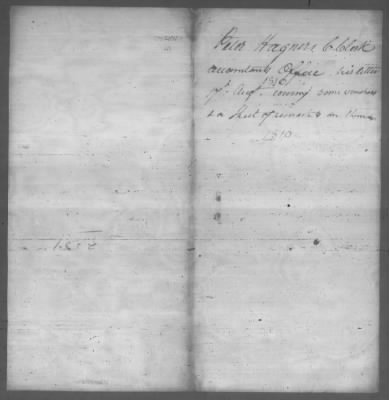 Peter Hagner C Clerk
accountants Office his letter
7th Augt. 1810 coving some vouchers
& a Sheet of remarks on them
1810